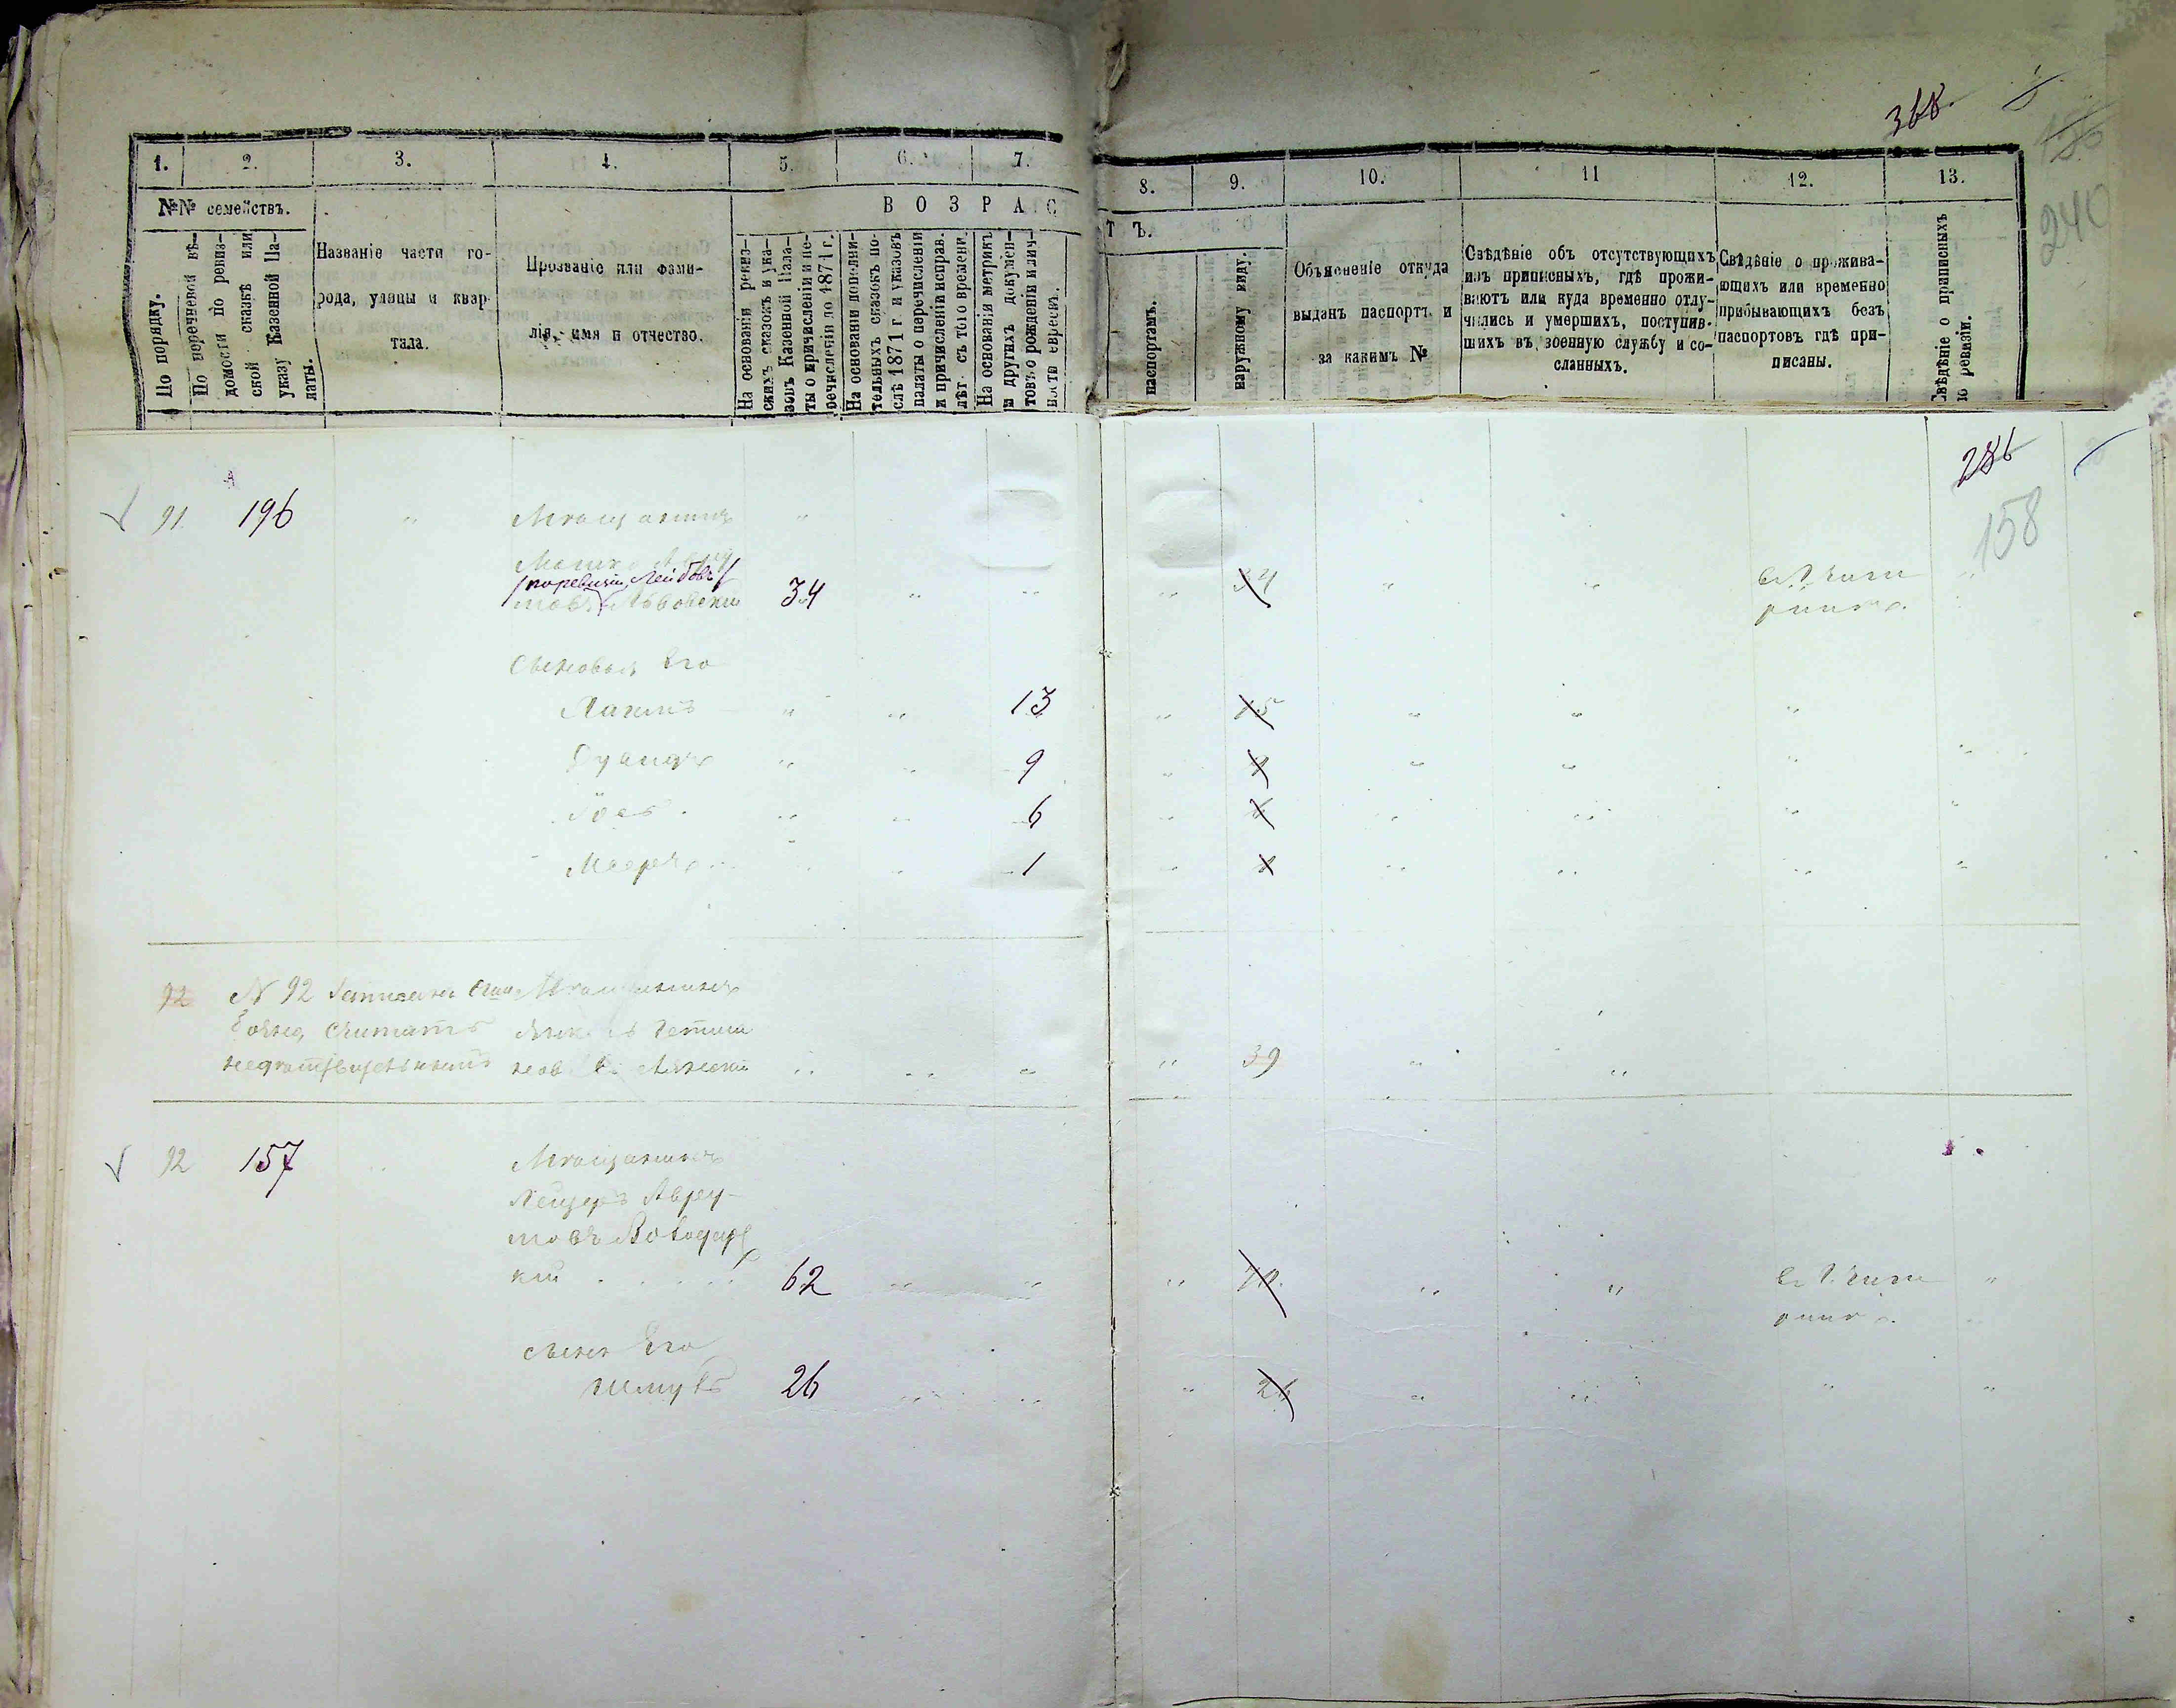 368.
186
240
1. 2. 3. 4. 5. 6. 7.
8. 9. 10. 11 12. 13.
№№ семействъ.
ВОЗРАС
ТЪ.
По порядку.
По перечневой вѣ-
домости по ревиз-
ской сказкѣ или
указу Казенной Па-
латы.
Названіе части го-
рода, улицы и квар-
тала.
Прозваніе или фами-
лія, имя и отчество.
На основаніи ревиз-
скихъ сказокъ и ука-
зовъ Казенной Пала-
ты о причисленіи и пе-
речисленіи до 1871 г.
На основаніи дополни-
тельныхъ сказокъ по-
слѣ 1871 г. и указовъ
палаты о перечисленіи
и причисленіи исправ.
лѣт. съ того времени.
На основаніи метрикъ
и другихъ докумен-
товъ о рожденіи и лич-
ности евреевъ.
паспортамъ.
наружному виду.
Объясненіе откуда
выданъ паспортъ и
за какимъ №
Свѣдѣніе объ отсутствующихъ
изъ приписныхъ, гдѣ прожи-
ваютъ или куда временно отлу-
чились и умершихъ, поступив-
шихъ въ военную службу и со-
сланныхъ.
Свѣдѣніе о прожива-
ющихъ или временно
прибывающихъ безъ
паспортовъ гдѣ при-
писаны.
Свѣдѣніе о приписныхъ
по ревизіи.
286
158
91 196 " Мѣщанинъ "
/по ревизіи Лейбовъ/
товъ Львовскій 34 " " " 34 " "
Сыновья Его
" " 13 " 15 " " "
" " 9 " 9 " " " "
Іось . " " 6 " 6 " " " "
Мееръ " " 1 " 1 " " " "
92 N 92 Записанъ Мѣщанинъ
считать
недѣйствительнымъ " " " " 39 " "
92 157 Мѣщанинъ
Лейзеръ Авру-
мовъ Володарс
кій 62 " " " 70 " " "
сынъ Его
Шмуль 26 " " " 26 " " " "